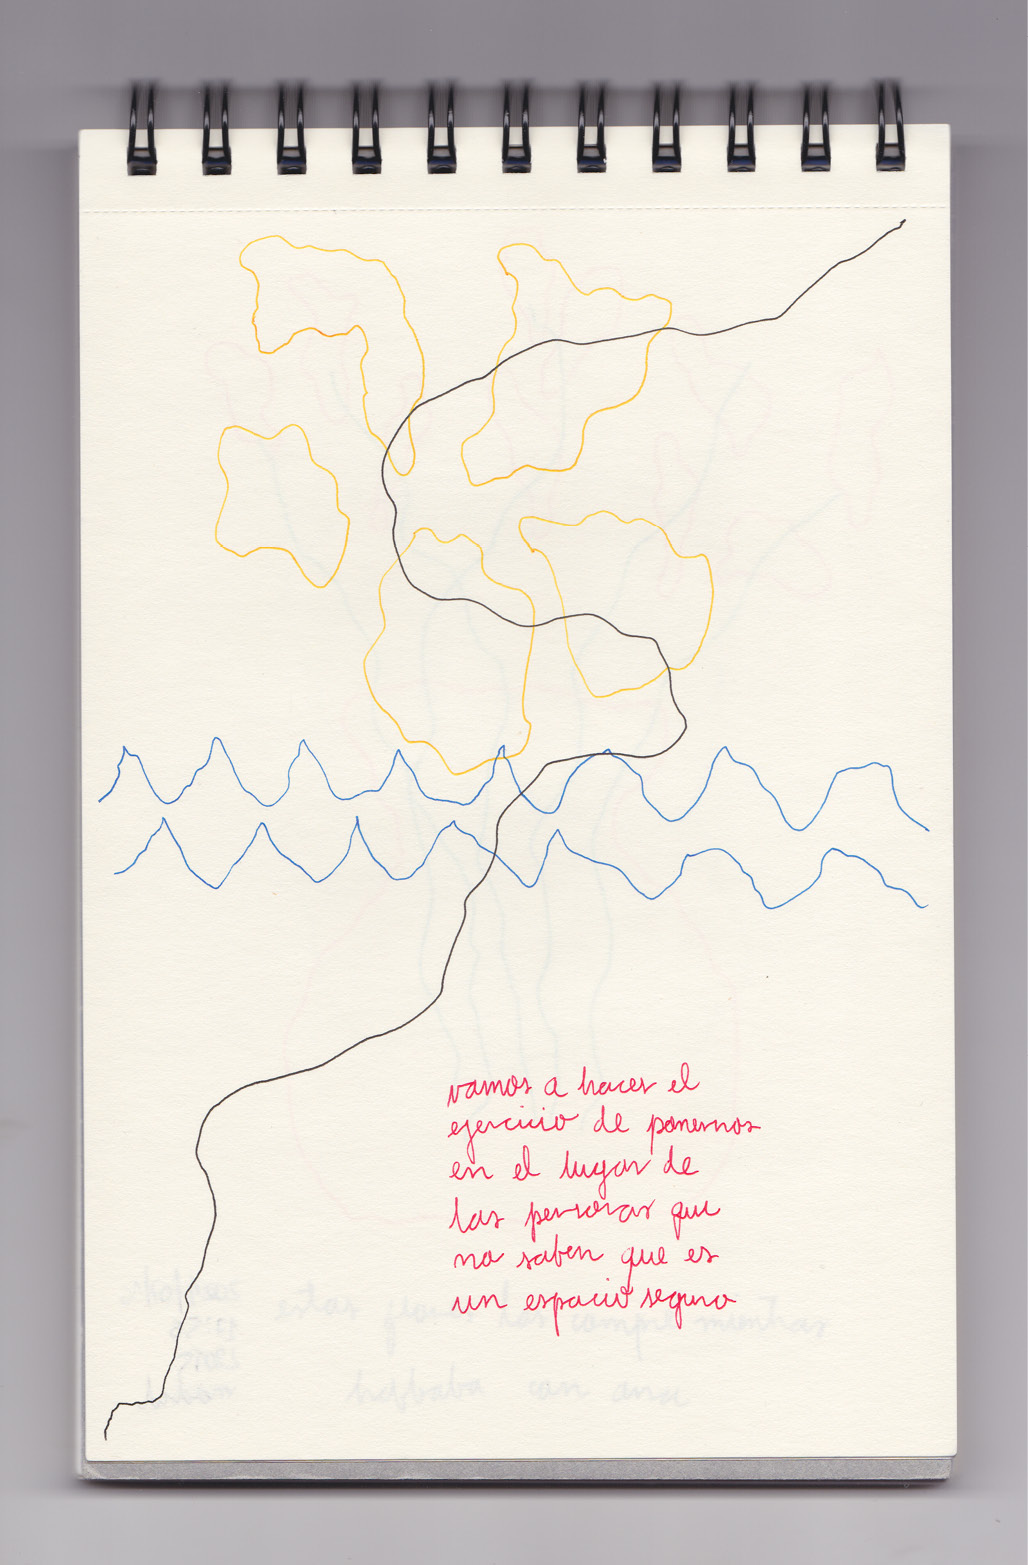 vamos a hacer el
ejercicio de ponernos
en el lugar de
las personas que
no saben que es
un espacio seguro
estas flores las compré mientras
hablaba con ana